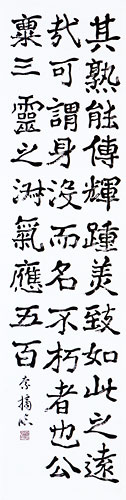 其熟能傳輝踵美致如此之遠
哉可謂身沒而名不朽者也公
稟三靈之淋氣應五百